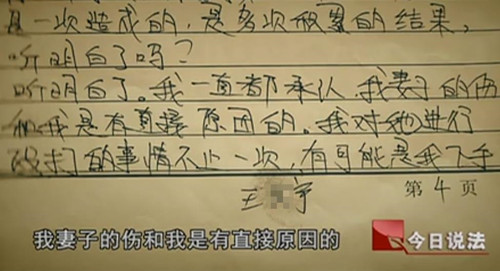 是一次造成的,是多次做案的结果,
听明白了吗?
听明白了。我一直都承认,我妻子的伤
和我是有直接原因的。我对她进行
殴打的事情不止一次,有可能是我下手
王 宇
第 4 页
我妻子的伤和我是有直接原因的
今日说法